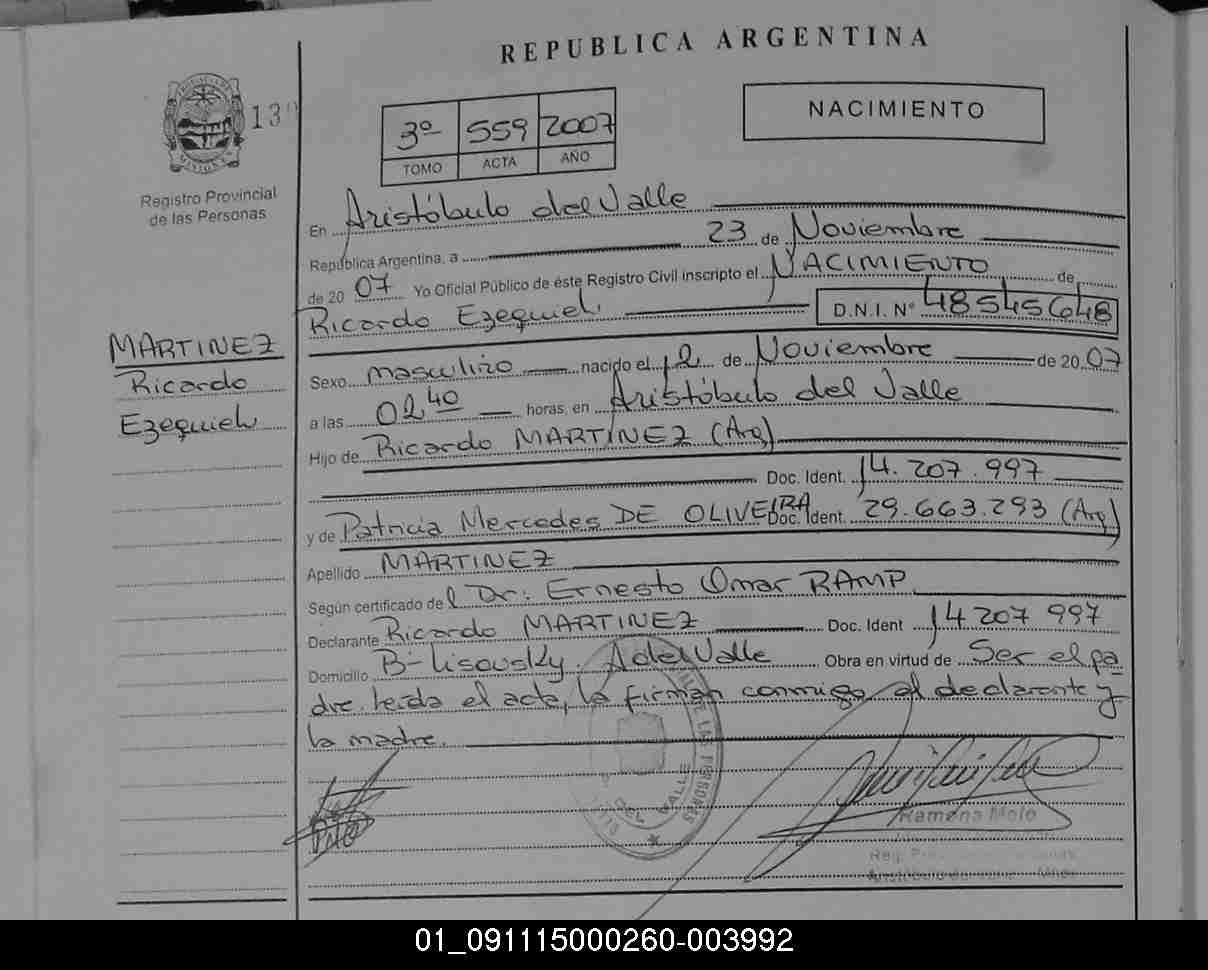 REPUBLICA ARGENTINA
PROVINCIA DE
MISIONES
13
Registro Provincial
de las Personas
3º 559 2007
TOMO ACTA AÑO
NACIMIENTO
En Aristóbulo del Valle
República Argentina, a 23 de Noviembre
de 2007 Yo Oficial Público de éste Registro Civil inscripto el NACIMIENTO de
Ricardo Ezequiel D.N.I. Nº 48545648
MARTINEZ
Ricardo
Ezequiel
Sexo masculino nacido el 12 de Noviembre de 2007
a las 02 40 horas, en Aristóbulo del Valle
Hijo de Ricardo MARTINEZ (Arg)
Doc. Ident. 14.207.997
y de Patricia Mercedes DE OLIVEIRA Doc. Ident. 29.663.293 (Arg)
Apellido MARTINEZ
Según certificado del Dr: Ernesto Omar RAMP
Declarante Ricardo MARTINEZ Doc. Ident 14207997
Domicilio Bº Lisowsky. A del Valle Obra en virtud de Ser el pa
dre. leída el acta, la firman conmigo el declarante y
la madre.
DE LAS PERSONAS
DEL VALLE
Ramona Melo
01_091115000260-003992